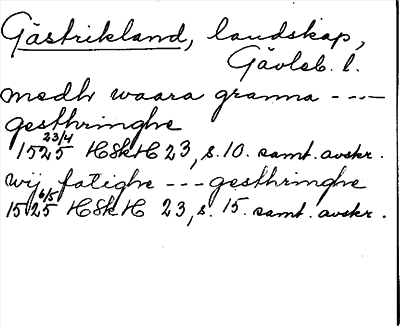 Gästrikland, landskap,
Gävleb. l.
medh waara granna ----
gesthringhe
1525 23/4 HSkH 23, s. 10. samt. avskr.
wij fatighe --- gesthringhe
1525 6/5 HSkH 23, s. 15. samt. avskr.